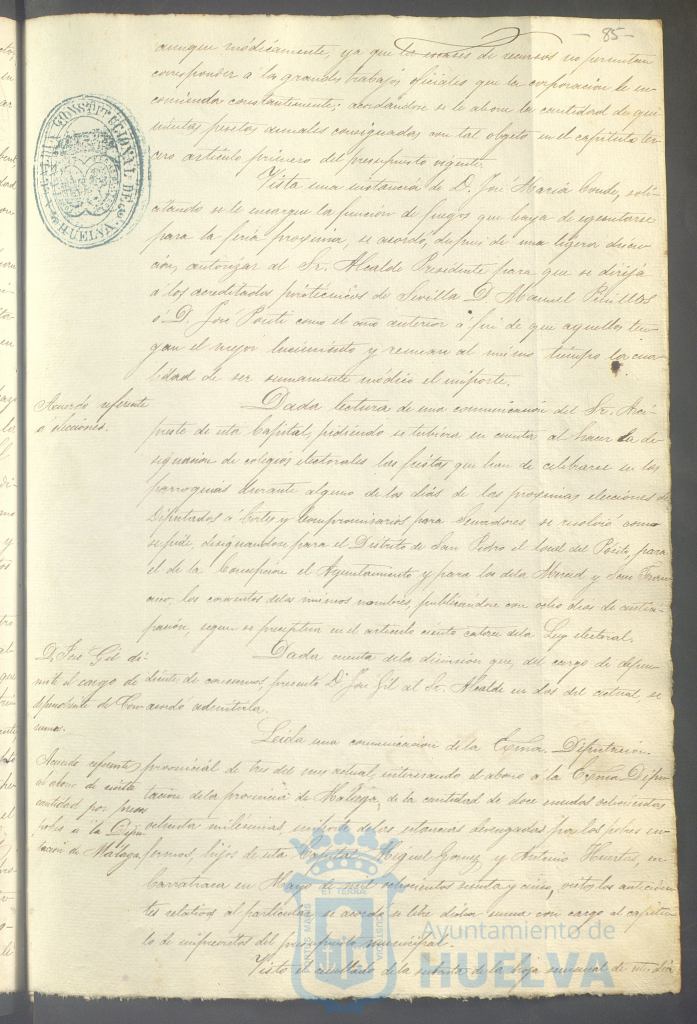 - 85 -
aunque módicamente, ya que los escases de recursos no permitan
corresponder á la grandes trabajos oficiales que la corporación le en-
comienda constantemente; acordándose se le abone la cantidad de qui-
nientas pesetas anuales consignadas con tal objeto en el capítulo ter-
cero artículo primero del presupuesto vigente.
Vista una instancia de D. José María Conde, soli-
citando se le encargue la función de fuegos que haya de ejecutarse
para la feria proxima, se acordó, despues de una ligera discu-
ción, autorizar al Sr. Alcalde Presidente para que se dirija
á los acreditados pirotécnicos de Sevilla D. Manuel
ó D. José Ponti como el año anterior á fin de que aquellos ten-
gan el mejor lucimiento y reunan al mismo tiempo la cua-
lidad de ser sumamente módico el importe.
Acuerdo referente
á elecciones.
Dada lectura de una comunicación del Sr. Arci-
preste de esta Capital, pidiendo se tubiera en cuenta al hacer la de-
signasion de colegios electorales las fiestas que han de celebrarse en las
parroquias durante alguno de los dias de las proximas elecciones de
Diputados á Cortes y Compromisarios para Senadores se resolvió como
se pide, designandose para el Distrito de San Pedro el local del Pósito, para
el de la Concepcion el Ayuntamiento y para los dela Merced y San Fran-
cisco, los conventos delos mismos nombres, publicándose con ocho dias de antici-
pación, segun se preceptua en el articulo ciento catorce dela Ley electoral.
D. José Gil di-
mite el cargo de
dependiente de Con-
sumos.
Dada cuenta dela dimision que, del cargo de depen-
diente de consumos, presentó D. José Gil al Sr. Alcalde en dos del actual, se
acordó admitirla.
Acuerdo referente
al abono de cierta
cantidad por
á la Dipu-
tación de Malaga
Leida una comunicación de la Exma. Diputación
provincial de tres del mes actual, interesando el abono á la Exma. Dipu-
tación dela provincia de Malaga, de la cantidad de doce escudos ochocientas
ochenta milesimas, importe delas estancias devengadas por los pobres en-
fermos, hijos de esta Capital Miguel Gomez y Antonio Huertas, en
Carratraca en Mayo de mil ochocientos sesenta y cinco, vistos los anteceden-
tes relativos al particular, se acordó se libre dicha suma con cargo al capitu-
lo de imprevistos del presupuesto municipal.
Visto el resultado de la subasta de la hoja semanal de
CONSTITUCIONAL DE
HUELVA
Ayuntamiento de
HUELVA